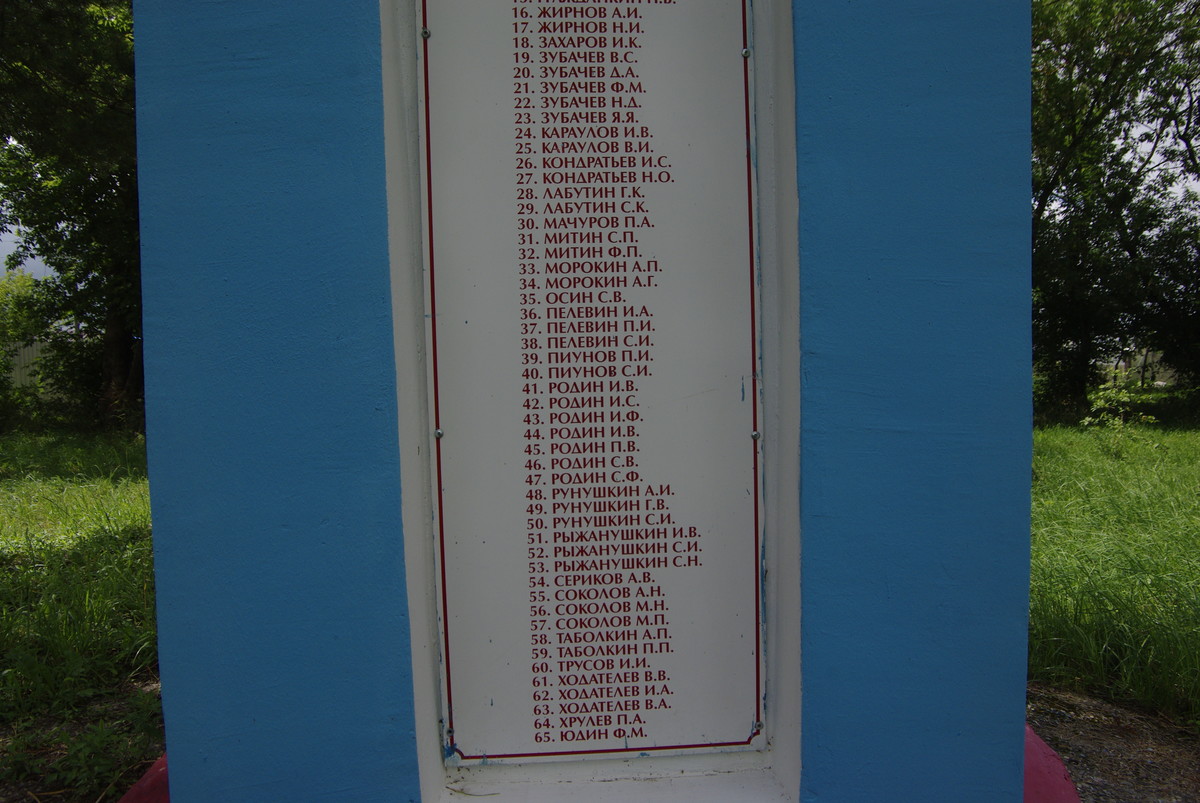 16. ЖИРНОВ А.И.
17. ЖИРНОВ Н.И.
18. ЗАХАРОВ И.К.
19. ЗУБАЧЕВ В.С.
20. ЗУБАЧЕВ Д.А.
21. ЗУБАЧЕВ Ф.М.
22. ЗУБАЧЕВ Н.Д.
23. ЗУБАЧЕВ Я.Я.
24. КАРАУЛОВ И.В.
25. КАРАУЛОВ В.И.
26. КОНДРАТЬЕВ И.С.
27. КОНДРАТЬЕВ Н.О.
28. ЛАБУТИН Г.К.
29. ЛАБУТИН С.К.
30. МАЧУРОВ П.А.
31. МИТИН С.П.
32. МИТИН Ф.П.
33. МОРОКИН А.П.
34. МОРОКИН А.Г.
35. ОСИН С.В.
36. ПЕЛЕВИН И.А.
37. ПЕЛЕВИН П.И.
38. ПЕЛЕВИН С.И.
39. ПИУНОВ П.И.
40. ПИУНОВ С.И.
41. РОДИН И.В.
42. РОДИН И.С.
43. РОДИН И.Ф.
44. РОДИН И.В.
45. РОДИН П.В.
46. РОДИН С.В.
47. РОДИН С.Ф.
48. РУНУШКИН А.И.
49. РУНУШКИН Г.В.
50. РУНУШКИН С.И.
51. РЫЖАНУШКИН И.В.
52. РЫЖАНУШКИН С.И.
53. РЫЖАНУШКИН С.Н.
54. СЕРИКОВ А.В.
55. СОКОЛОВ А.Н.
56. СОКОЛОВ М.Н.
57. СОКОЛОВ М.П.
58. ТАБОЛКИН А.П.
59. ТАБОЛКИН П.П.
60. ТРУСОВ И.И.
61. ХОДАТЕЛЕВ В.В.
62. ХОДАТЕЛЕВ И.А.
63. ХОДАТЕЛЕВ В.А.
64. ХРУЛЕВ П.А.
65. ЮДИН Ф.М.